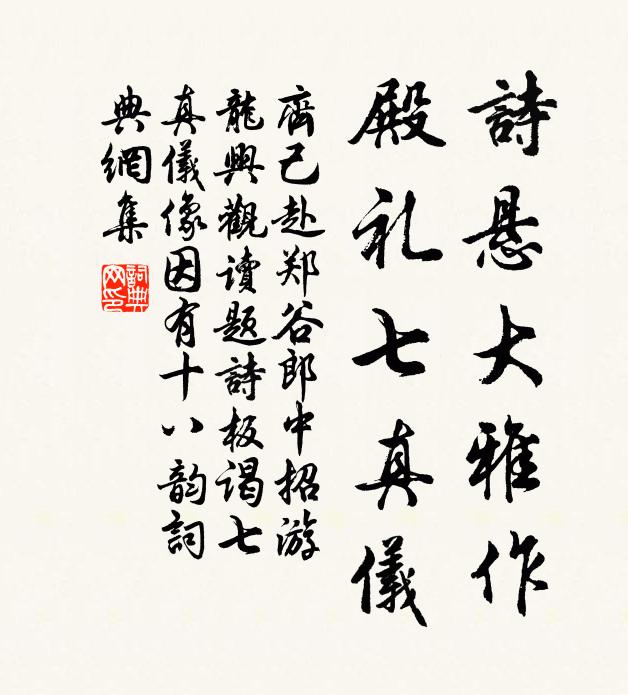 詩悬大雅作
殿礼七真儀
齊己赴郑谷郎中招游
龍興觀讀题詩板谒七
真儀像因有十八韵詞
典網集
詞典网印